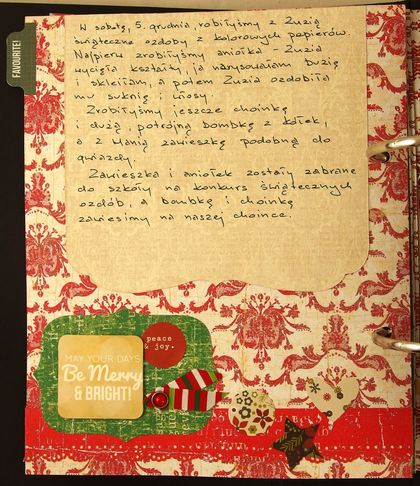 FAVOURITE!
W sobotę, 5. grudnia robiłyśmy z Zuzią
świąteczne ozdoby z kolorowych papierów.
Najpierw zrobiłyśmy aniołka - Zuzia
wycięła kształty, ja narysowałam buzię
i skleiłam, a potem Zuzia ozdobiła
mu suknię i włosy.
Zrobiłyśmy jeszcze choinkę
i dużą, potrójną bombkę z kółek,
a z Hanią zawieszkę podobną do
gwiazdy.
Zawieszka i aniołek zostały zabrane
do szkoły na konkurs świątecznych
ozdób, a bombkę i choinkę
zawiesimy na naszej choince.
peace
& joy.
MAY YOUR DAYS
Be Merry
& BRIGHT!